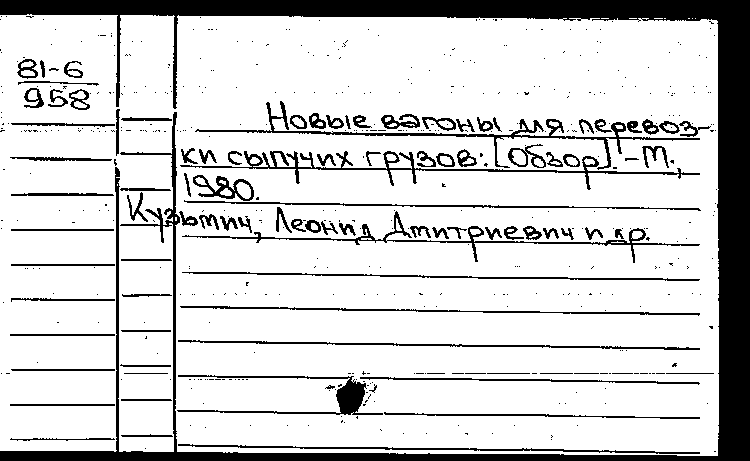 81-6
958
Новые вагоны для перевоз-
ки сыпучих грузов: [Обзор]. -М.,
1980.
Кузьмич, Леонид Дмитриевич и др.